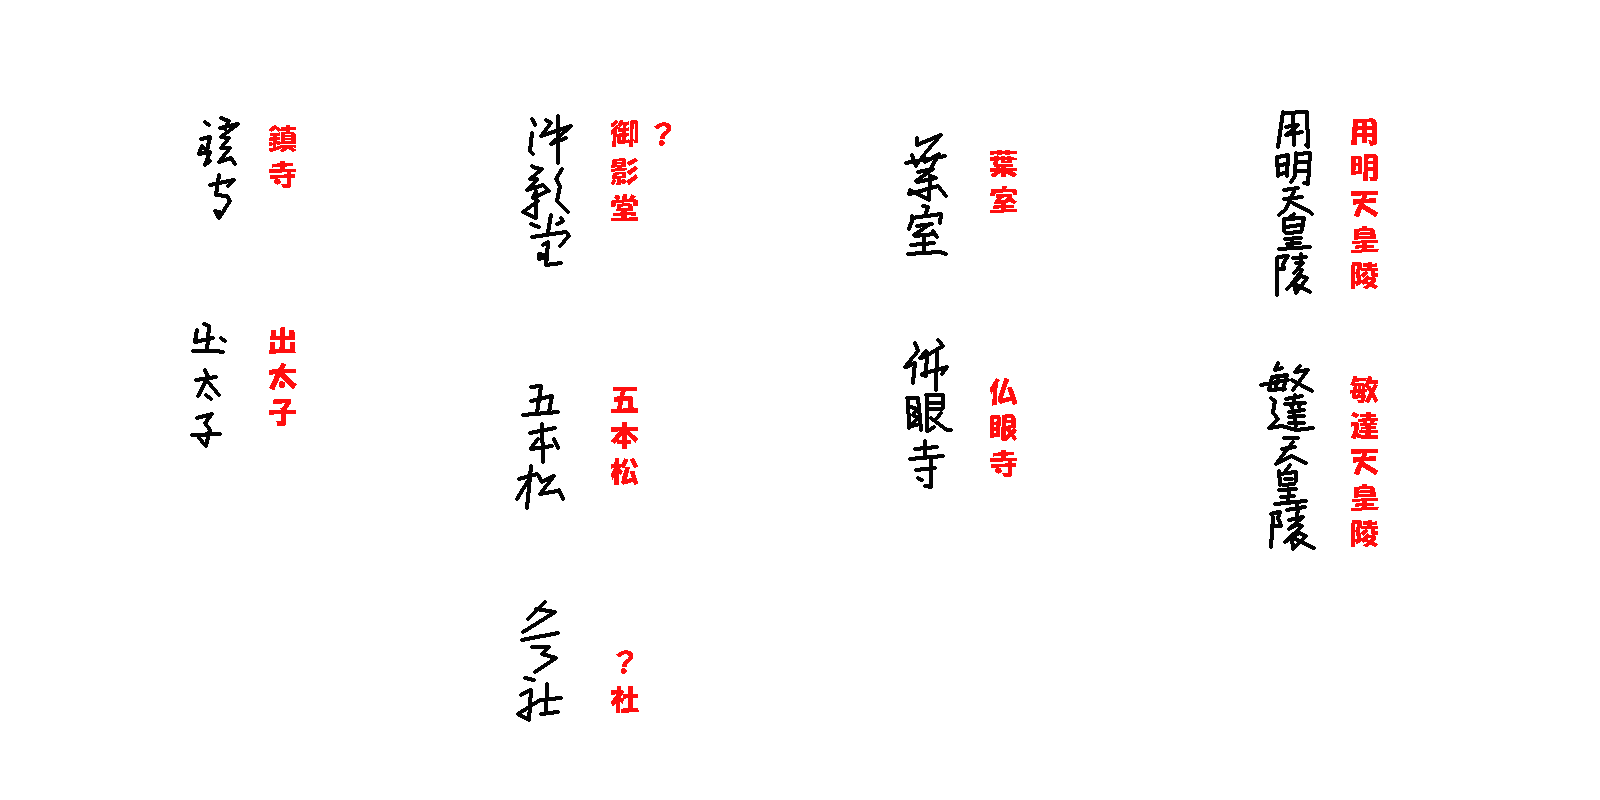 用明天皇陵
用明天皇陵
敏達天皇陵
敏達天皇陵
葉室
葉室
仏眼寺
佛眼寺
?
御影堂
御影堂
五本松
五本松
?社
社
鎮寺
寺
出太子
出太子